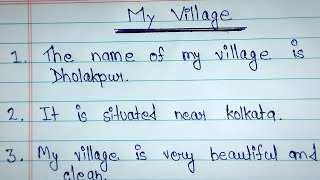 My Village
1. The name of my village is
Dholakpur.
2. It is situated near kolkata.
3. My village is very beautiful and
clean.